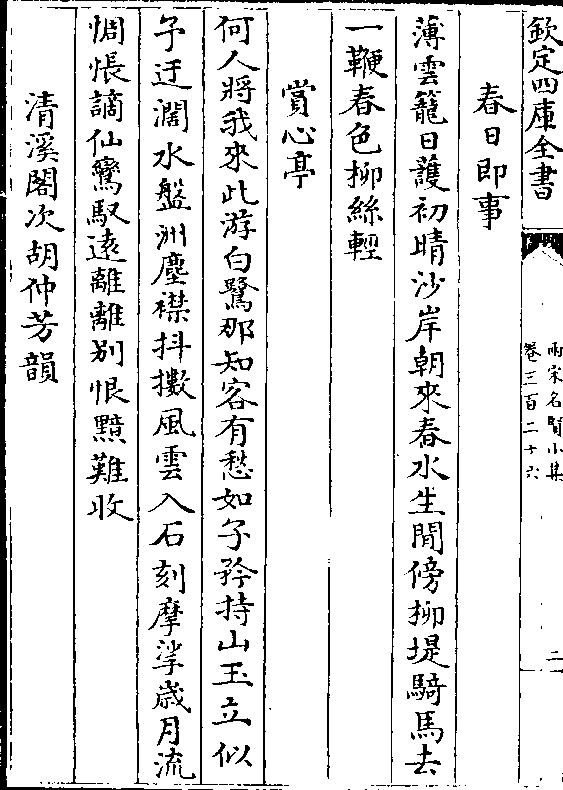 欽定四庫全書
兩宋名賢小集
卷三百二十六
二
春日即事
薄雲籠日護初晴沙岸朝來春水生閒傍柳堤騎馬去
一鞭春色柳絲輕
賞心亭
何人將我來此游白鷺那知客有愁如子矜持山玉立似
予迂濶水盤洲塵襟抖擻風雲入石刻摩挲歲月流
惆悵謫仙鸞馭逺離離别恨黯難收
清溪閣次胡仲芳韻